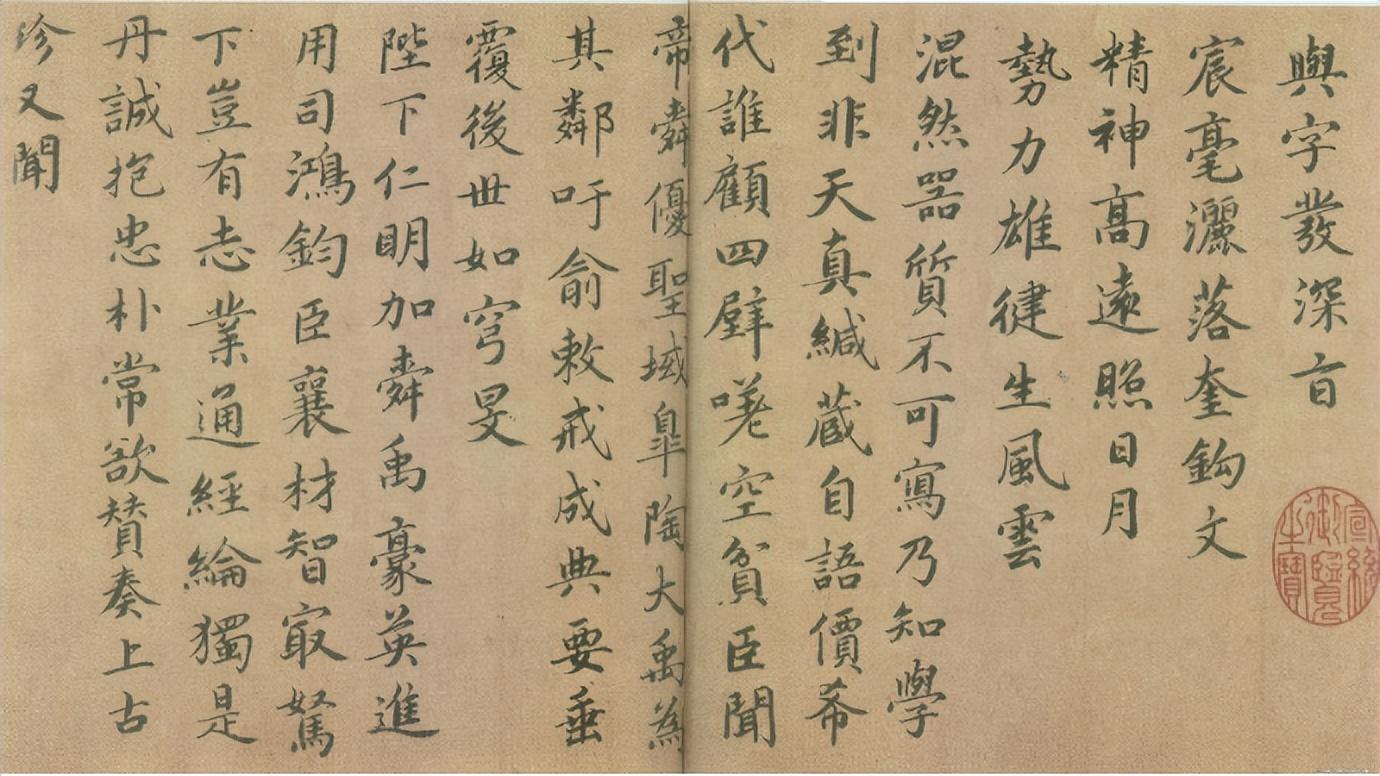 輿字發深盲
宸毫灑落奎鈎文
精神高遠照日月
勢力雄健生風雲
混然器質不可寫乃知學
到非天真緘蔵自語價希
代誰顧四壁嘆空貧臣聞
帝舜優聖域皐陶大禹為
其鄰吁俞敕戒成典要垂
覆後世如穹旻
陛下仁明加舜禹豪英進
用司鴻鈞臣襄材智㝡駑
下豈有志業通經綸獨是
丹誠抱忠朴常欲賛奏上古
珍又聞
宣統御覽之寶